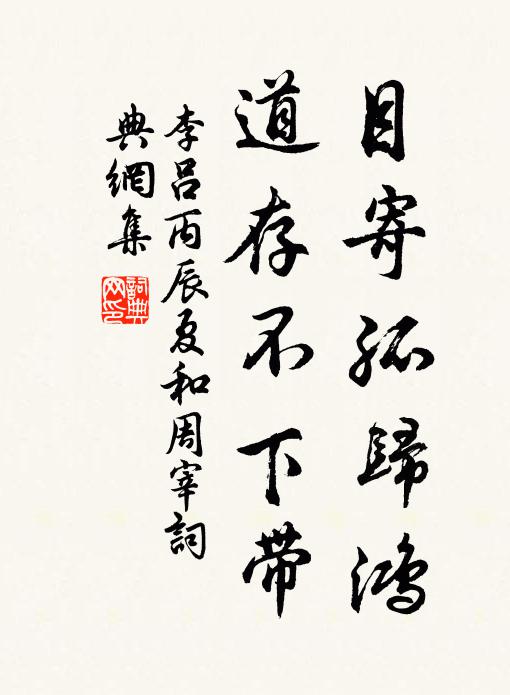 目寄孤歸鴻
道存不下带
李吕丙辰夏和周宰詞
典網集
詞典网印